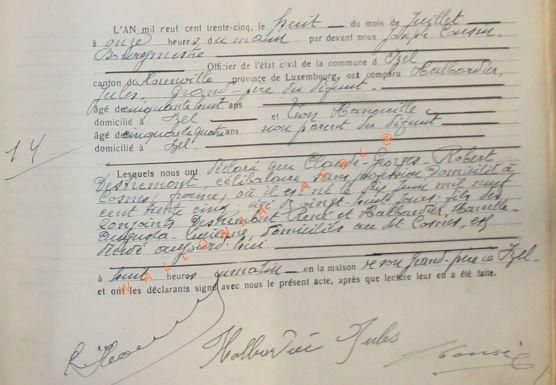 L'AN mil neuf cent trente-cinq, le huit du mois de juillet
à onze heures du matin par devant nous Joseph Cousin,
Bourgmestre
Officier de l'état civil de la commune d'Izel
canton de Florenville province de Luxembourg, ont comparu Halbardier,
Jules, Grand-père du défunt
âgé de cinquante huit ans
domicilié à Izel et Léon
âgé de cinquante quatre ans non parent du défunt
domicilié à Izel
14
Lesquels nous ont déclaré que Claude-Georges-Robert
Desremont, célibataire, sans profession domicilié à
Cosnes, france, où il est né le dix juin mil neuf
cent trente cinq, âgé de vingt-huit jours, fils des
conjoints Desremont René et Halbardier,
Augusta- domiciliés au dit Cosnes, est
décédé aujourd'hui
à huit heures du matin en la maison de son grand-père à Izel
et ont les déclarants signé avec nous le présent acte, après que lecture leur en a été faite.
Halbardier Jules